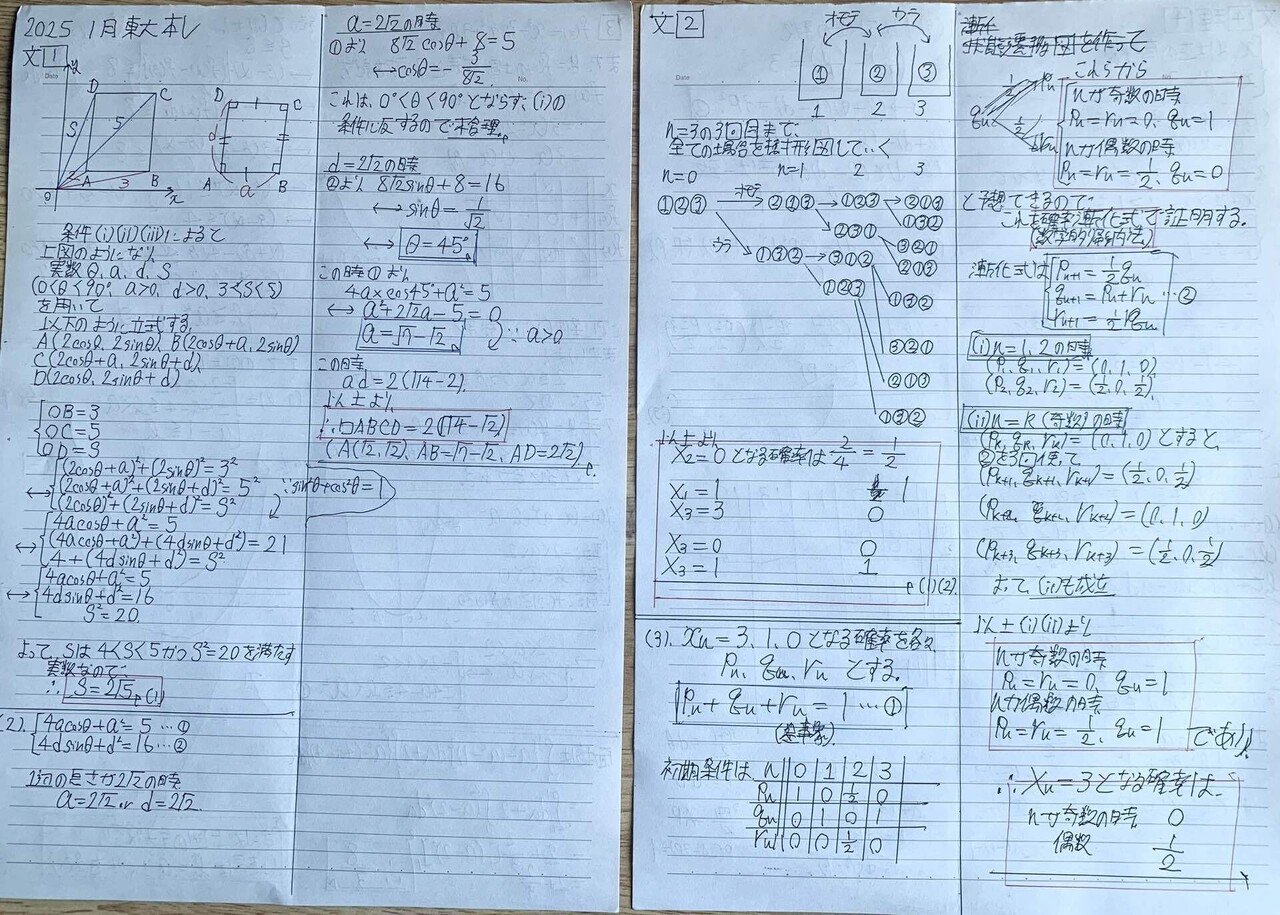 2025 1月東大本レ
文1
y
D
C
S
5
A
3
B
O
x
D
C
d
A
a
B
条件(i)(ii)(iii)によって
上図のようになり
実数θ、a、d、S
(0<θ<90°、a>0、d>0、3<S<5)
を用いて
以下のように立式する。
A(2cosθ、2sinθ)、B(2cosθ+a、2sinθ)
C(2cosθ+a、2sinθ+d)、
D(2cosθ、2sinθ+d)
OB=3
OC=5
OD=S
↔ (2cosθ+a)²+(2sinθ)²=3²
(2cosθ+a)²+(2sinθ+d)²=5²
(2cosθ)²+(2sinθ+d)²=S²
∵sin²θ+cos²θ=1
↔ 4acosθ+a²=5
(4acosθ+a²)+(4dsinθ+d²)=21
4+(4dsinθ+d²)=S²
↔ 4acosθ+a²=5
4dsinθ+d²=16
S²=20.
よって、Sは4<S<5かつS²=20を満たす
実数なので、
∴ S=2√5 (1)
(2). 4acosθ+a²=5 …①
4dsinθ+d²=16 …②
1辺の長さが2√2の時
a=2√2 or d=2√2.
a=2√2の時
①より 8√2cosθ+8=5
↔cosθ=-3/8√2
これは、0°<θ<90°とならず、(i)の
条件に反するので不合理。
d=2√2の時
②より 8√2sinθ+8=16
↔sinθ=1/√2
↔ θ=45°
この時①より
4a×cos45°+a²=5
↔ a²+2√2a-5=0
a=√7-√2. ∵a>0
この時
ad=2(√14-2).
以上より
∴□ABCD=2(√14-√2)
(A(√2,√2)、AB=√7-√2、AD=2√2)
文2
オモテ ウラ
① ② ③
1 2 3
n=3の3回目まで、
全ての場合を樹形図していく
n=0 n=1 2 3
①②③ オモテ ②①③ ①②③ ②①③
①③②
②③① ③②①
②①③
ウラ ①③② ③①② ①③②
①②③
③②①
②①③
①③②
以上より
X₂=0となる確率は 2/4=1/2
X₁=1 1
X₃=3 0
X₃=0 0
X₃=1 1
(1)(2).
(3). Xn=3、1、0となる確率を各々
Pn、qn、rnとする。
Pn+qn+rn=1 …①
初期条件は n 0 1 2 3
Pn 1 0 1/2 0
qn 0 1 0 1
rn 0 0 1/2 0
状態遷移図を作って
これらから
Pn
qn 1/2
1/2 rn
nが奇数の時
Pn=rn=0、qn=1
nが偶数の時
Pn=rn=1/2、qn=0
と予想できるので、
これを確率漸化式で証明する。
(数学的帰納法)
漸化式は Pn+1=1/2qn
qn+1=Pn+rn …②
rn+1=1/2qn
(i)n=1、2の時
(P₁、q₁、r₁)=(0、1、0)
(P₂、q₂、r₂)=(1/2、0、1/2)
(ii)n=k(奇数)の時
(Pk、qk、rk)=(0、1、0)とすると、
②を3回使って
(Pk+1、qk+1、rk+1)=(1/2、0、1/2)
(Pk+2、qk+2、rk+2)=(0、1、0)
(Pk+3、qk+3、rk+3)=(1/2、0、1/2)
よって、(ii)も成立
以上(i)(ii)より
nが奇数の時
Pn=rn=0、qn=1
nが偶数の時
Pn=rn=1/2、qn=1 であり、
∴Xn=3となる確率は、
nが奇数の時、0
偶数 1/2